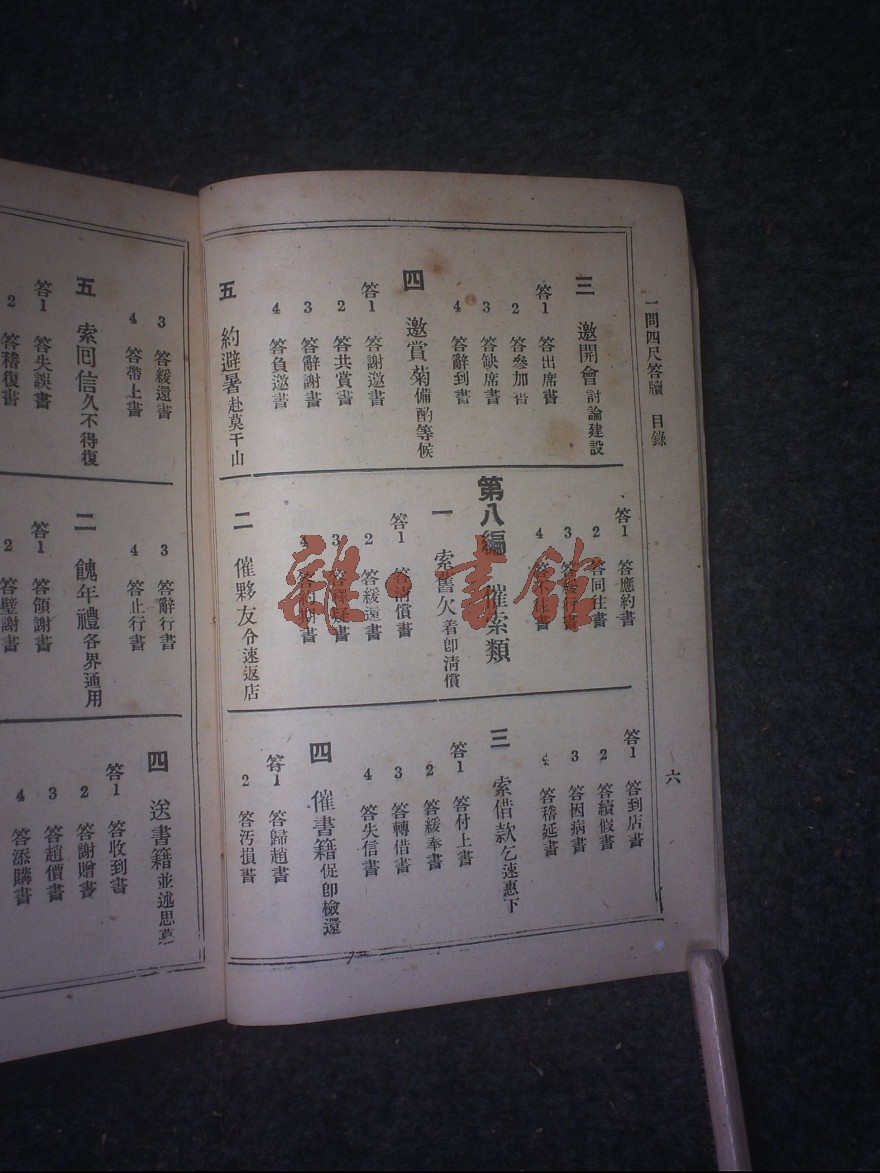 一問四答尺牘 目錄
六
三 邀開會 討論建設
答1 答出席書
2 答參加書
3 答缺席書
4 答辭到書
四 邀賞菊 備酌等候
答1 答謝邀書
2 答共賞書
3 答辭謝書
4 答負邀書
五 約避暑 赴莫干山
答1 答應約書
2 答同往書
3 答緩行書
4 答不往書
第八編 催索類
一 索舊欠 着卽清償
答1 答清償書
2 答緩還書
3
4
二 催夥友 令速返店
答1 答到店書
2 答續假書
3 答因病書
4 答稽延書
三 索借款 乞速惠下
答1 答付上書
2 答緩奉書
3 答轉借書
4 答失信書
四 催書籍 促卽檢還
答1 答歸趙書
2 答汚損書
3 答緩還書
4 答帶上書
五 索回信 久不得復
答1 答失誤書
2 答稽復書
3 答辭行書
4 答止行書
二 餽年禮 各界通用
答1 答領謝書
2 答璧謝書
四 送書籍 並述思慕
答1 答收到書
2 答謝贈書
3 答趙價書
4 答添購書
雜·書館